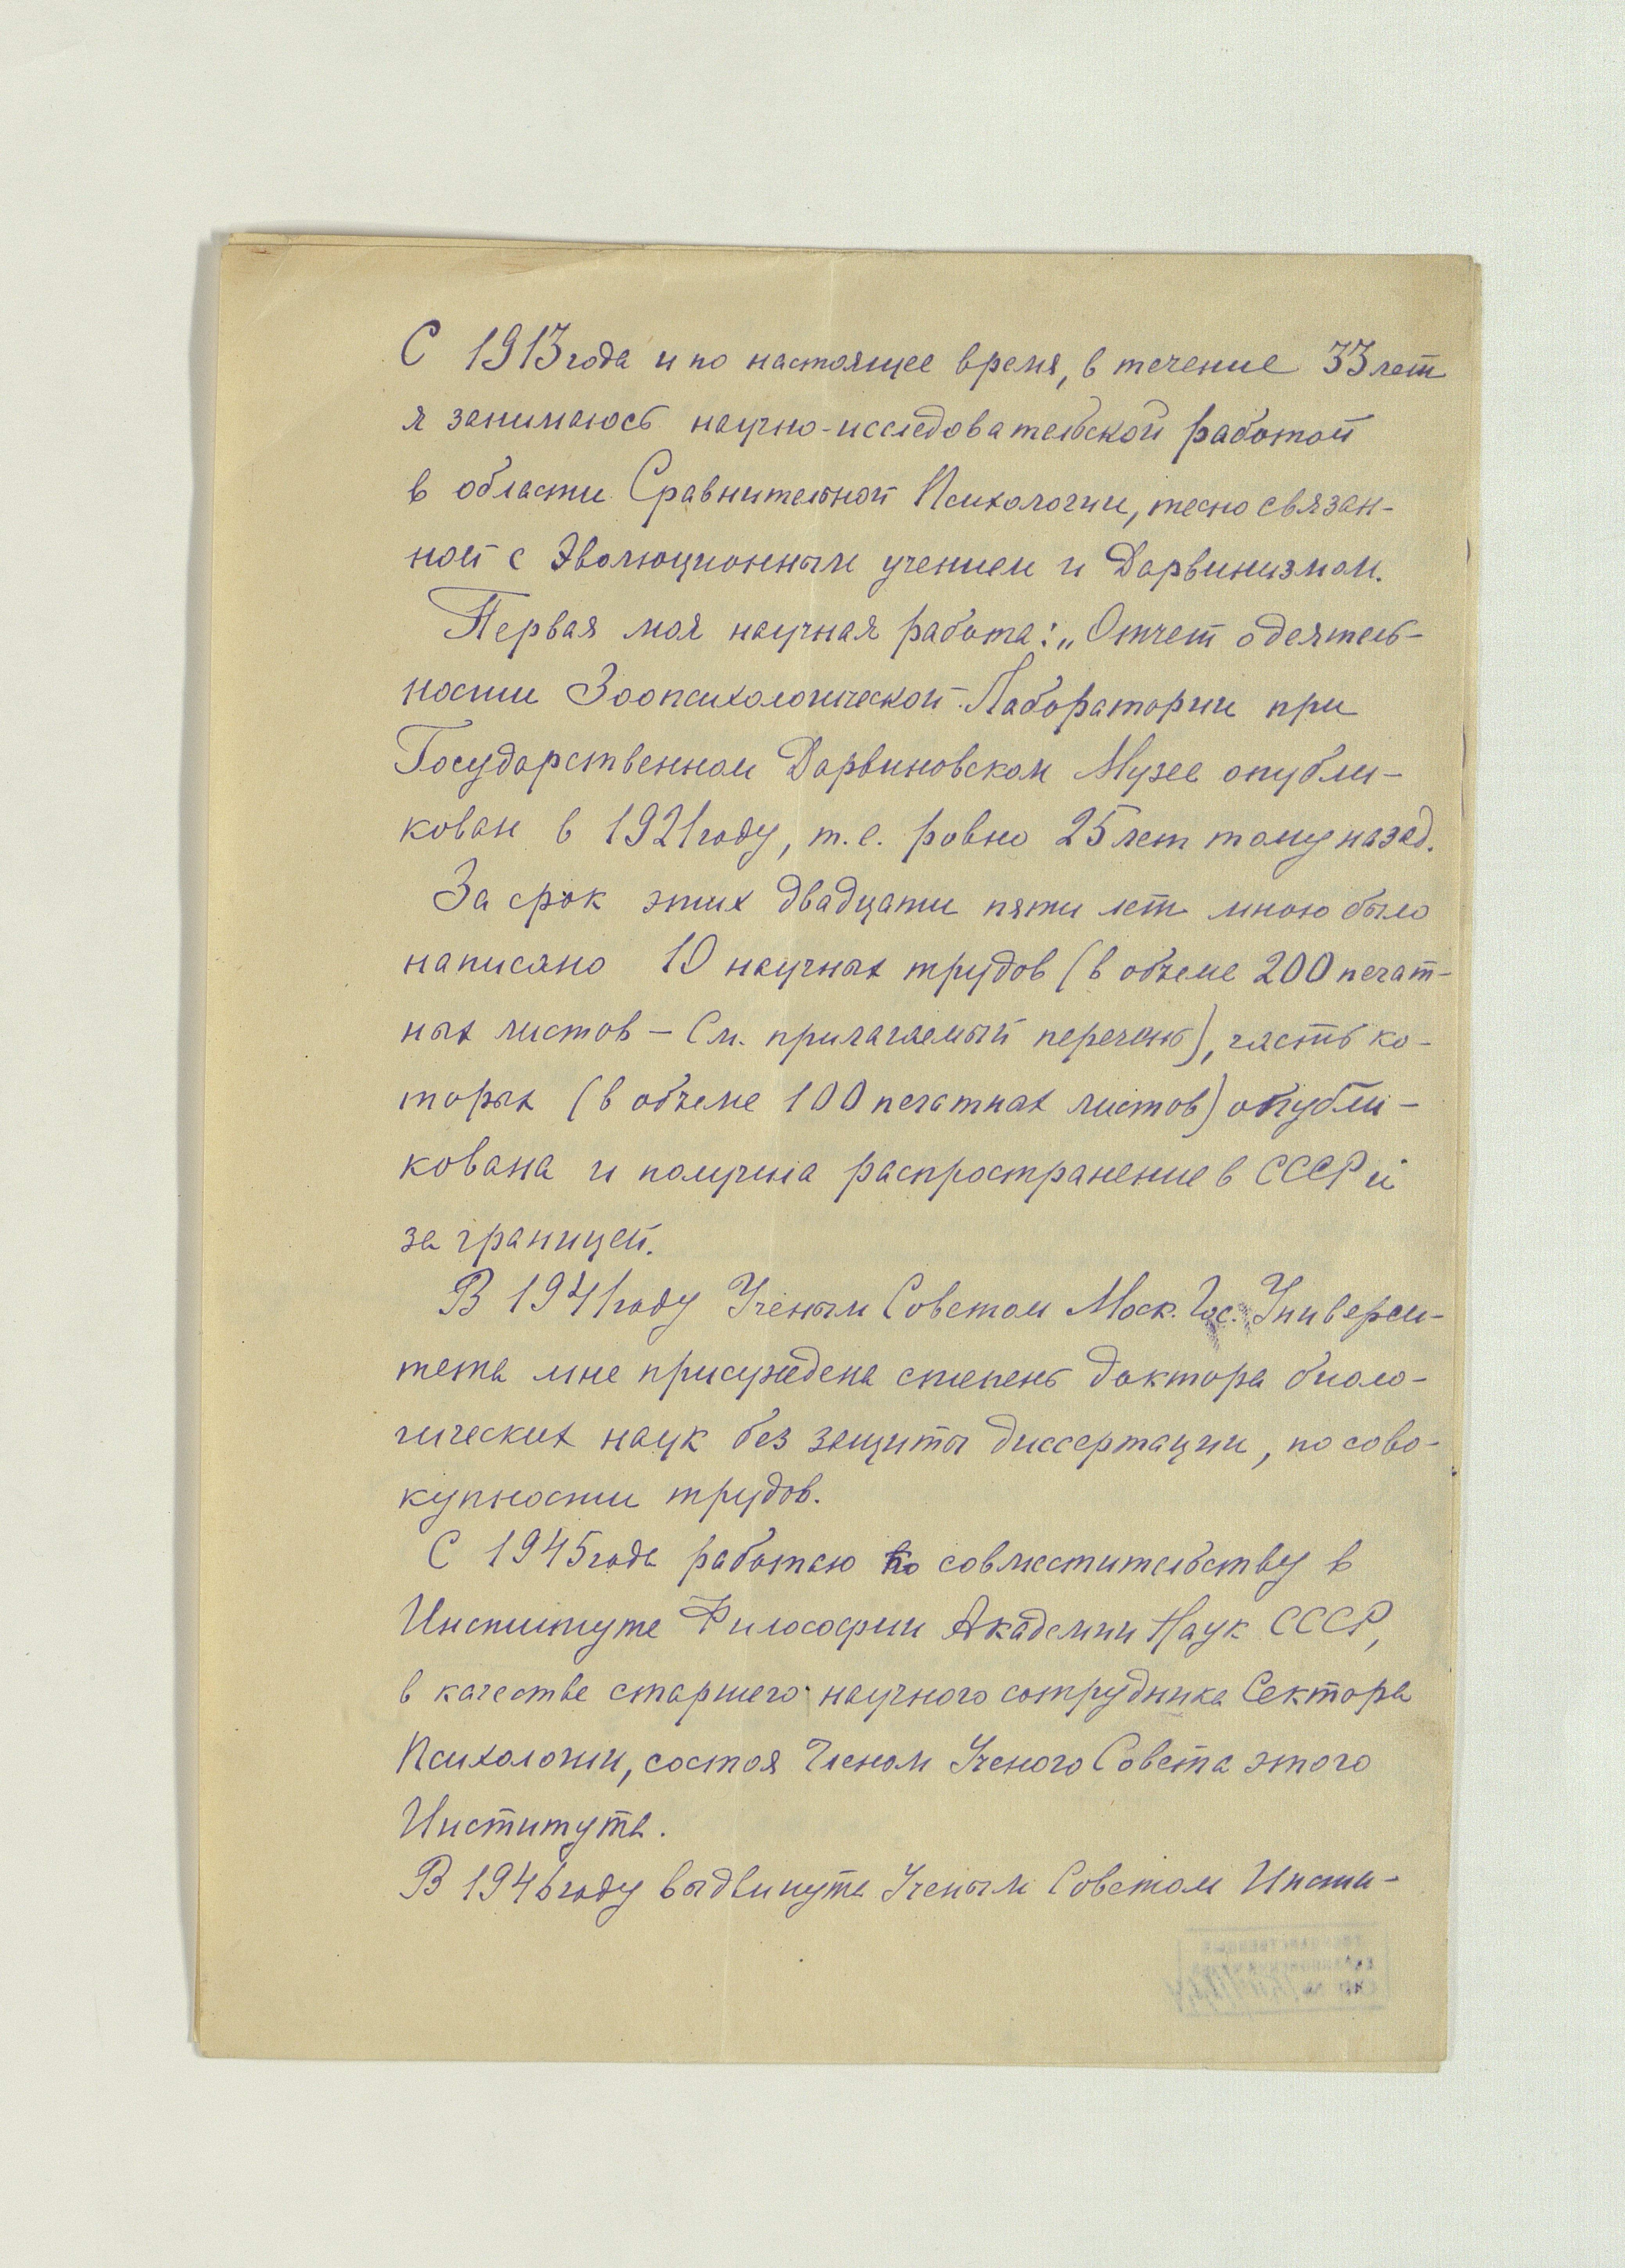 С 1913 года и по настоящее время, в течение 33 лет
я занимаюсь научно-исследовательской работой
в области Сравнительной Психологии, тесно связан-
ной с Эволюционным учением и Дарвинизмом.
Первая моя научная работа: „Отчет о деятель-
ности Зоопсихологической Лаборатории при
Государственном Дарвиновском Музее опубли-
кован в 1921 году, т.е. ровно 25 лет тому назад.
За срок этих двадцати пяти лет мною было
написано 10 научных трудов (в объеме 200 печат-
ных листов – См. прилагаемый перечень), часть ко-
торых (в объеме 100 печатных листов) опубли-
кована и получила распространение в СССР и
за границей.
В 1941 году Ученым Советом Моск. Гос. Универси-
тета мне присуждена степень доктора биоло-
гических наук без защиты диссертации, по сово-
купности трудов.
С 1945 года работаю по совместительству в
Институте Философии Академии Наук СССР,
в качестве старшего научного сотрудника Сектора
Психологии, состоя Членом Ученого Совета этого
Института.
В 1946 году выдвинута Ученым Советом Инсти-